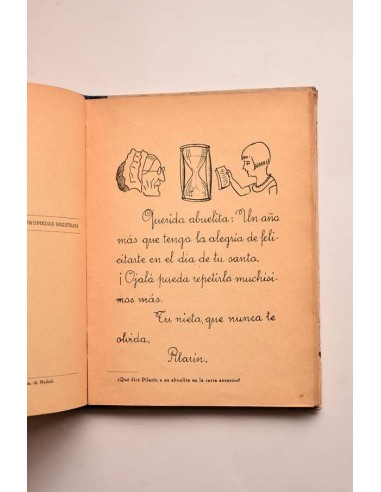 PROPIEDAD REGISTRADA
Madrid.
Querida abuelita: Un año
más que tengo la alegría de feli-
citarte en el día de tu santo.
¡Ojalá pueda repetirlo muchísi-
mos más.
Tu nieta, que nunca te
olvida,
Pilarín.
¿Qué dice Pilarín a su abuelita en la carta anterior?